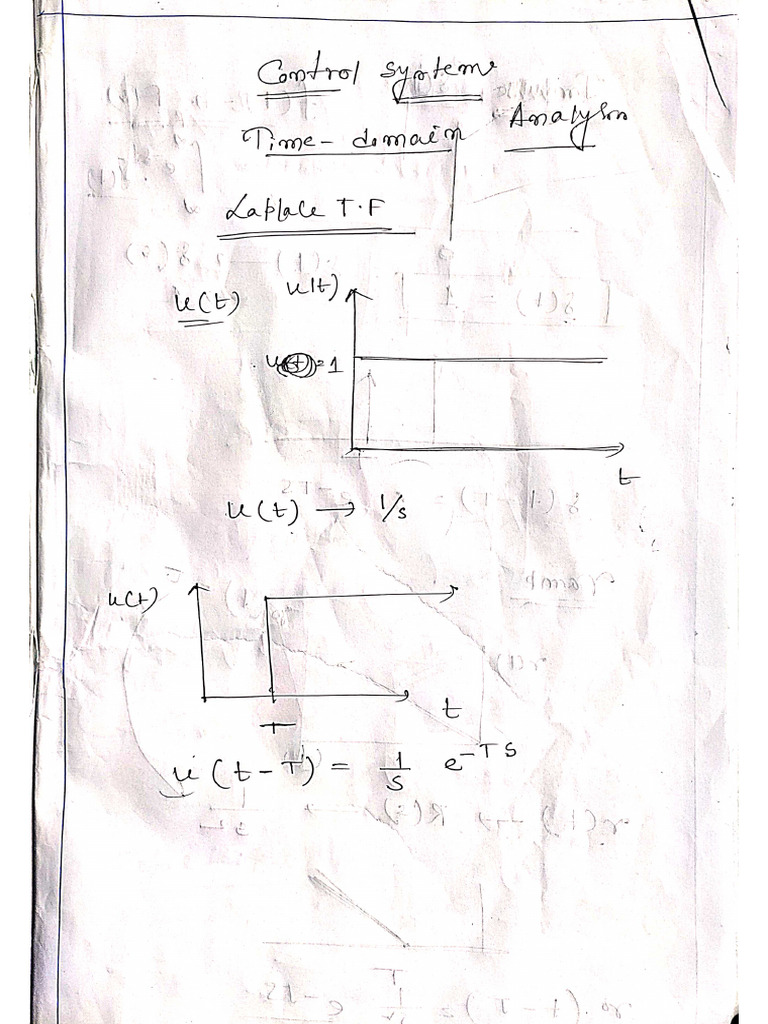 Control system
Time-domain Analysis
Laplace T.F
u(t)
u(t)
u(t)=1
t
u(t) → 1/s
u(t)
t
T
u(t-T) = 1/s e^-TS